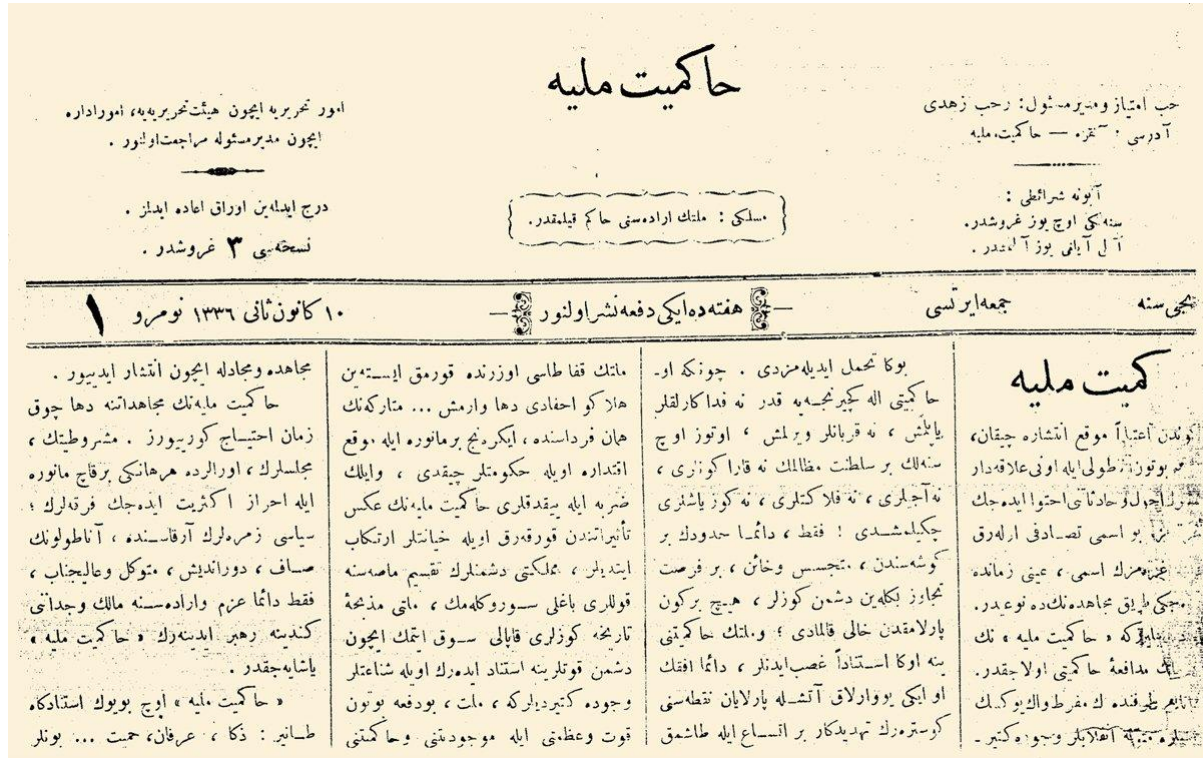 حاكميت مليه
امتياز ومدير مسئول : رجب زهدی
آدرسی : آنقره — حاكميت مليه
آبونه شرائطی :
سنه‌لكی اوچ يوز غروشدر.
آلتی آيلغی يوز آلتمشدر .
مسلكی : ملتك اراده‌سنی حاكم قيلمقدر.
امور تحريريه ايچون هيئت تحريريه‌يه، امور اداره
ايچون مدير مسئوله مراجعت اولنور .
درج ايدلمه‌ين اوراق اعاده ايدلمز .
نسخه‌سی ٣ غروشدر .
سنه
جمعه ايرتسی
هفته‌ده ايكی دفعه نشر اولنور
١٠ كانون ثانی ١٣٣٦ نومرو ١
كميت مليه
اعتباراً موقع انتشاره چيقان،
بوتون طولی ايله اونی علاقه‌دار
حادثاتی احتوا ايده‌جك
بو اسمی تصادفی اوله‌رق
غزته‌مزك اسمی ، عينی زمانده
طريق مجاهده‌نك ده نوعيدر.
كه « حاكميت مليه » نك
مدافعهٔ حاكميتی اولاجقدر.
انقلابلر وجوده كتير-
بوكا تحمل ايديله‌مزدی . چونكه او-
حاكميتی اله كچيرنجه‌يه قدر نه فداكارلقلر
ياپلمش ، نه قربانلر ويرلمش ، اوتوز اوچ
سنه‌لك بر سلطنت مظالمك نه قارا كونلری ،
نه آجيلری ، نه فلاكتلری ، نه كوز ياشلری
چكيلمشدی ! فقط ، دائما حدودك بر
كوشه‌سندن ، متجسس وخائن ، بر فرصت
تجاوز بكله‌ين دشمن كوزلر ، هيچ بركون
پارلامقدن خالی قالمادی ؛ وملتك حاكميتنی
ينه اوكا استناداً غصب ايدنلر ، دائما افقك
او ايكی يووارلاق آتشله پارلايان نقطه‌سی
كوستره‌رك تهديدكار بر اتساع ايله طاشمق
ملتك قفا طاسی اوزرنده قورمق ايسته‌ين
هلاكو احفادی دها وارمش ... متاركه‌نك
همان فرداسنده ، ايكرنج بر مانوره ايله موقع
اقتداره اويله حكومتلر چيقدی ، وايلك
ضربه ايله ييقدقلری حاكميت مليه‌نك عكس
تأثيراتندن قورقه‌رق اويله خيانتلر ارتكاب
ايتديلر ، مملكتی دشمنلرك تقسيم ماصه‌سنه
قوللری باغلی سوروكله‌مك ، ملتی مذبحهٔ
تاريخه كوزلری قاپالی سوق ايتمك ايچون
دشمن قوتلرينه استناد ايده‌رك اويله شناعتلر
وجوده كتيرديلركه ، ملت ، بودفعه بوتون
قوت وعظمتی ايله موجوديتنی وحاكميتنی
مجاهده ومجادله ايچون انتشار ايدييور .
حاكميت مليه‌نك مجاهداتنه دها چوق
زمان احتياج كورييورز . مشروطيتك ،
مجلسلرك ، اورالرده هرهانكی برقاچ مانوره
ايله احراز اكثريت ايده‌جك فرقه‌لرك ؛
سياسی زمره‌لرك آرقاسنده ، آناطولونك
صاف ، دورانديش ، متوكل وعاليجناب ،
فقط دائما عزم واراده‌سنه مالك وجدانی
كندينه رهبر ايدينه‌رك « حاكميت مليه »
ياشايه‌جقدر .
« حاكميت مليه » اوچ بويوك استنادكاه
طانير : ذكا ، عرفان، حميت ... بونلر